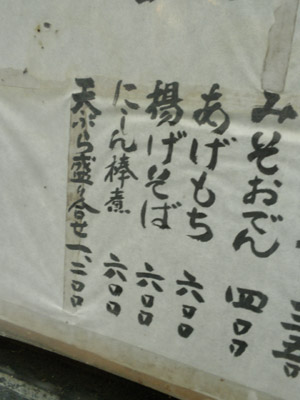 みそおでん 四〇〇
あげもち 六〇〇
揚げそば 六〇〇
にしん棒煮 六〇〇
天ぷら盛り合せ 一、二〇〇